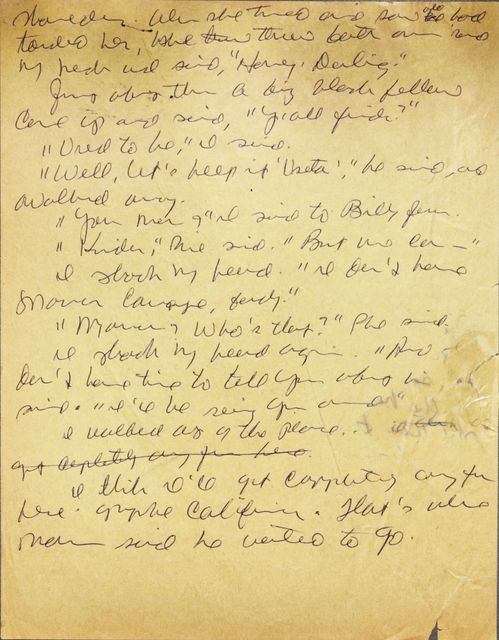 When she turned and saw who had
her, she threw both arms
my neck and said, "Honey. Darling."
Just about then a big black fellow
came up and said, "Y'all finds?"
"Used to be," I said.
"Well, let's keep it 'Useta'," he said, and
walked away.
"Your man?" I said to Billy Jean.
"Kinda," she said. "But we can—"
I shook my head. "I don't have
Marvin Courage, Lady."
"Marvin? Who's that?" She said.
I shook my head again. "And
don't have time to tell you about him
said. "I'll be seeing you around"
I walked out of the place.
got completely away from here.
I think I'll get completely away from
here. Maybe California. That's where
Marvin said he wanted to go.